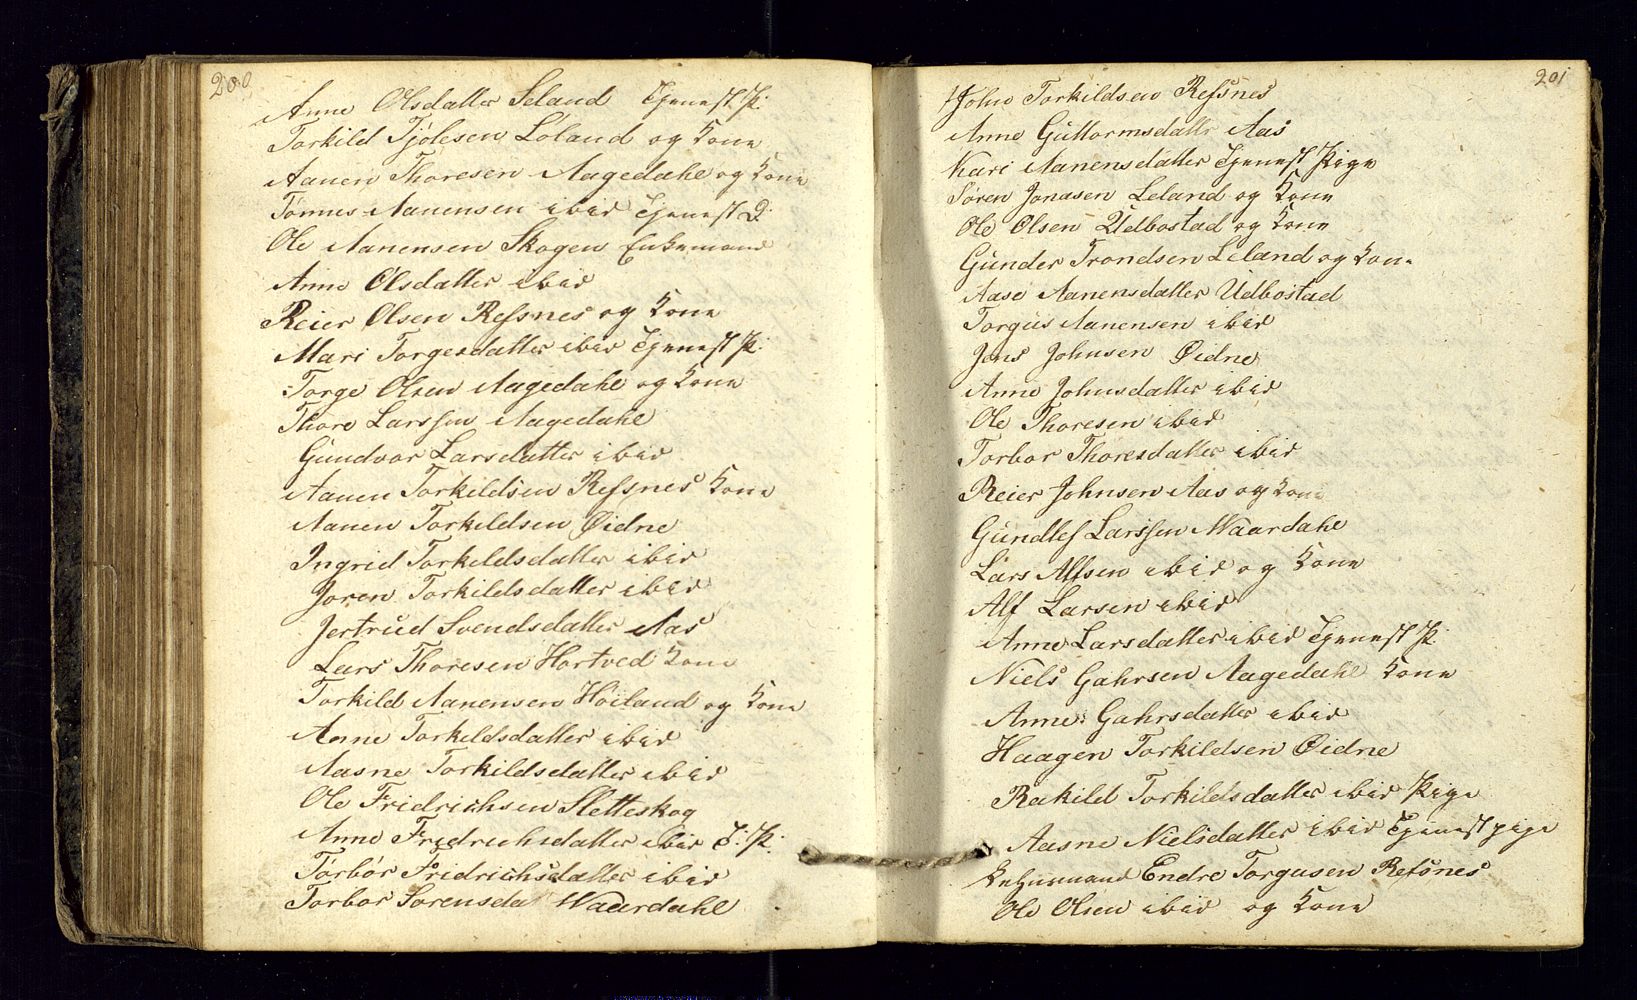 200
Anne Olsdatter Seland Tjenest P:
Torkild Tjølesen Løland og Kone
Aanen Thoresen Aagedahl og Kone
Tønnes Aanensen ibid Tjenest D:
Ole Aanensen Skogen Enkemand
Anne Olsdatter ibid
Reier Olsen Refsnes og Kone
Mari Torgesdatter ibid Tjenest P:
Torge Olsen Aagedahl og Kone
Thore Larssen Aagedahl
Gundvor Larsdatter ibid
Aanen Torkildsen Refsnes Kone
Aanen Torkildsen Øidne
Ingrid Torkildsdatter ibid
Joren Torkildsdatter ibid
Jertrud Svendsdatter Aas
Lars Thoresen Hortved Kone
Torkild Aanensen Höiland og Kone
Anne Torkildsdatter ibid
Aasne Torkildsdatter ibid
Ole Fridrichsen Sletteskog
Anne Fridrichsdatter ibid T: P:
Torbor Fridrichsdatter ibid
Torbor Sørensda Maardahl
201
John Torkildsen Refsnes
Anne Guttormsdattr Aas
Kari Aanensdatter Tjenest Pige
Søren Jonasen Leland og Kone
Ole Olsen Udbostad og Kone
Gunder Trondsen Leland og Kone
Aase Aanensdatter Udbostad
Torgus Aanensen ibid
Jens Johnsen Øidne
Anne Johnsdatter ibid
Ole Thoresen ibid
Torbor Thoresdatter ibid
Reier Johnsen Aas og Kone
Gundlef Larssen Maardahl
Lars Alfsen ibid og Kone
Alf Larsen ibid
Anne Larsdatter ibid Tjenest P:
Niels Gahrsen Aagedahl Kone
Anne Gahrsdatter ibid
Haagen Torkildsen Øidne
Rakild Torkildsdatter ibid Pige
Aasne Nielsdatter ibid Tjenestpige
Enkemand Endre Torgusen Refsnes
Ole Olsen ibid og Kone